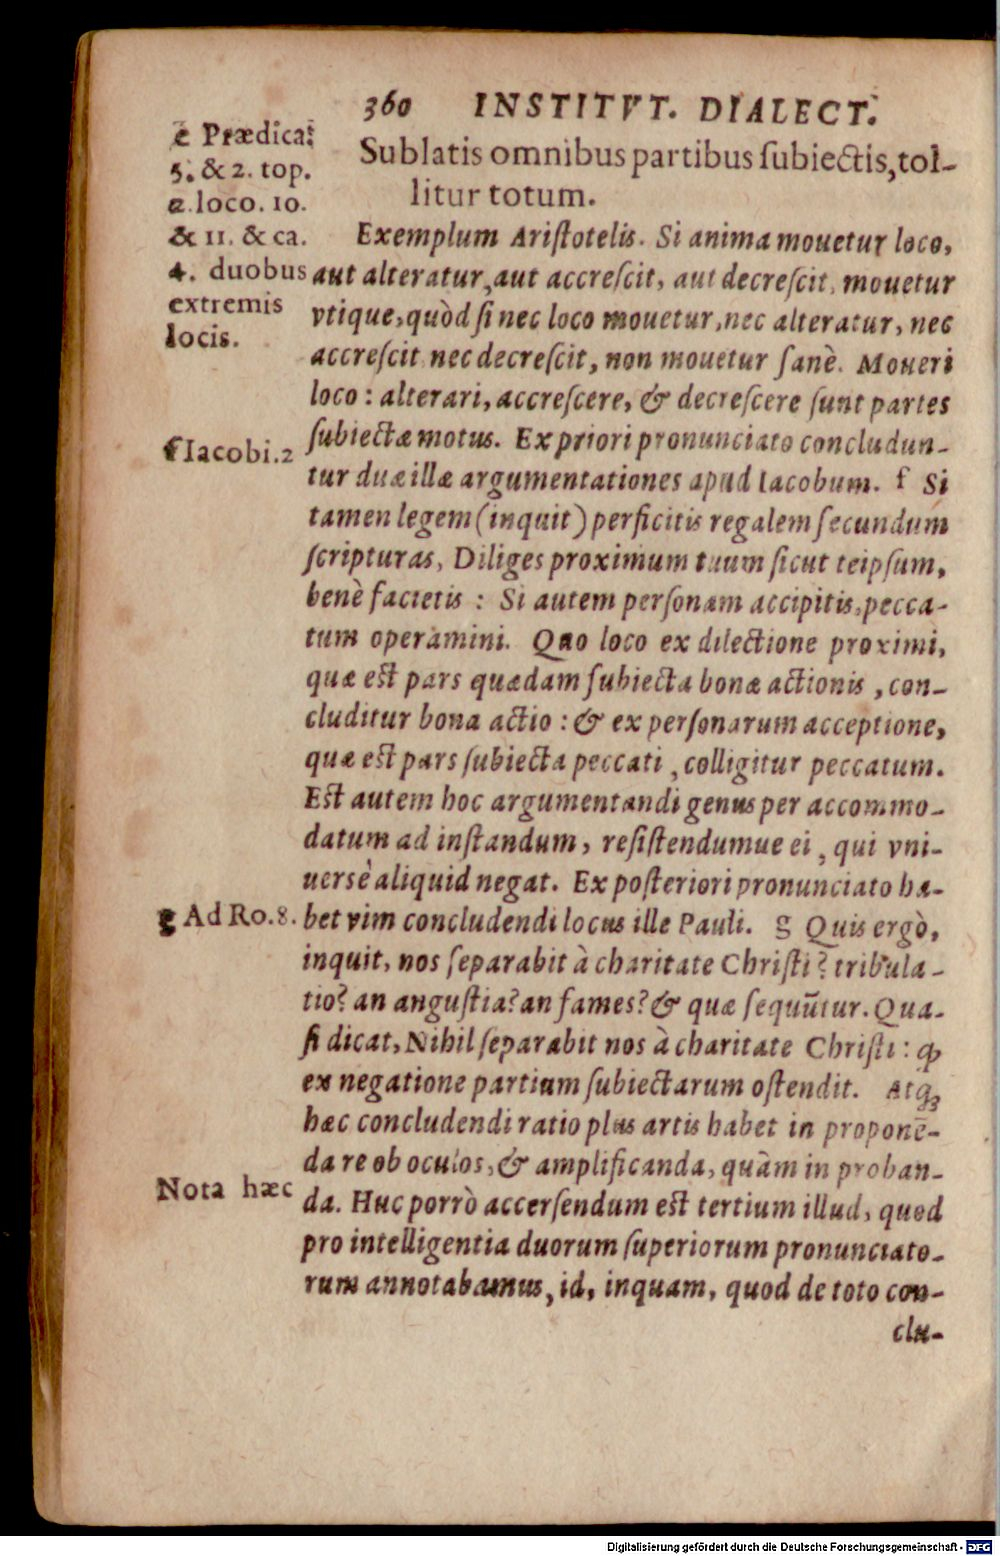 360 INSTITVT. DIALECT.
e Prædica:
5. & 2. top.
a loco. 10.
& 11. & ca.
4. duobus
extremis
locis.
Sublatis omnibus partibus ſubiectis, tol-
litur totum.
Exemplum Ariſtotelis. Si anima mouetur loco,
aut alteratur, aut accreſcit, aut decreſcit, mouetur
vtique, quòd ſi nec loco mouetur, nec alteratur, nec
accreſcit nec decreſcit, non mouetur ſanè. Moueri
loco: alterari, accreſcere, & decreſcere ſunt partes
ſubiectæ motus. Ex priori pronunciato concludun-
f Iacobi. 2
tur duæ illæ argumentationes apud Iacobum. f Si
tamen legem (inquit) perficitis regalem ſecundum
ſcripturas, Diliges proximum tuum ſicut teipſum,
benè facietis: Si autem perſonam accipitis, pecca-
tum operamini. Quo loco ex dilectione proximi,
quæ est pars quædam ſubiecta bonæ actionis, con-
cluditur bona actio: & ex perſonarum acceptione,
quæ est pars ſubiecta peccati, colligitur peccatum.
Est autem hoc argumentandi genus per accommo-
datum ad inſtandum, reſiſtendumue ei, qui vni-
uersè aliquid negat. Ex poſteriori pronunciato ha-
g Ad Ro. 8.
bet vim concludendi locus ille Pauli. g Quis ergò,
inquit, nos ſeparabit à charitate Chriſti? tribula-
tio? an anguſtia? an fames? & quæ ſequūtur. Qua-
ſi dicat, Nihil ſeparabit nos à charitate Chriſti: ꝙ
ex negatione partium ſubiectarum oſtendit. Atqꝫ
hæc concludendi ratio plus artis habet in proponē-
da re ob oculos, & amplificanda, quàm in proban-
Nota hæc
da. Huc porrò accerſendum est tertium illud, quod
pro intelligentia duorum ſuperiorum pronunciato-
rum annotabamus, id, inquam, quod de toto con-
clu-
Digitalisierung gefördert durch die Deutsche Forschungsgemeinschaft - DFG